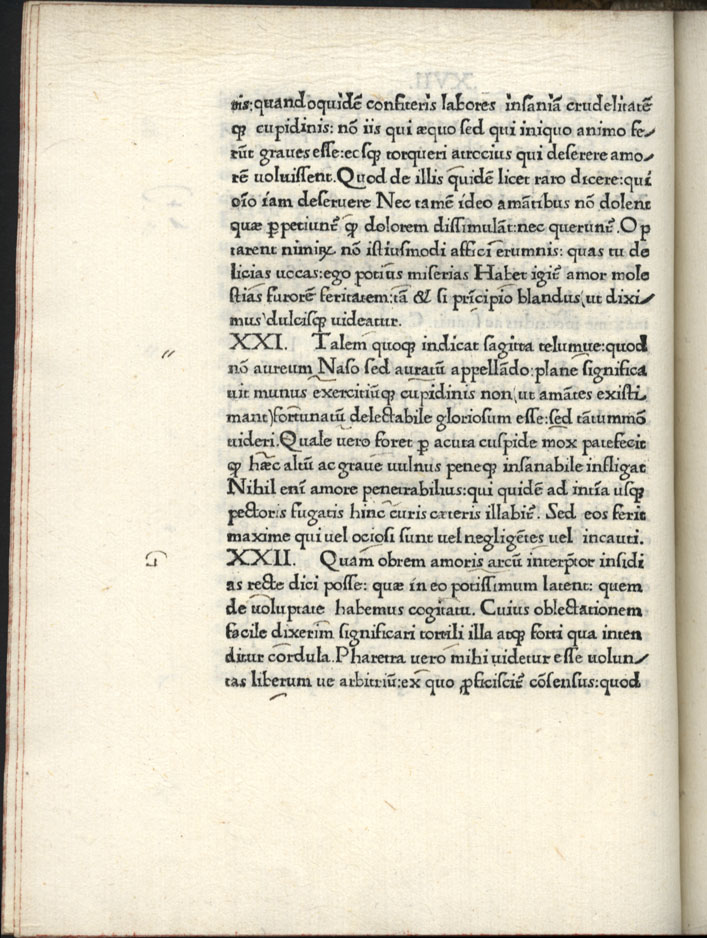 nis:quandoquidē confiteris labores insaniā crudelitatē
qꝫ cupidinis: nō iis qui æquo sed qui iniquo animo fe⸗
rūt graues esse:ecsqꝫ torqueri atrocius qui deserere amo⸗
rē uoluissent.Quod de illis quidē licet raro dicere:qui
oīo iam deseruere Nec tamē ideo amātibus nō dolent
quæ ꝑpetiunt̄ qꝫ dolorem dissimulāt:nec querunt̄.Op
tarent nimiꝝ nō istiusmodi affici erumnis: quas tu de
licias uocas:ego potius miserias Habet igit̄ amor mole
stias furorē feritatem:tā & si prīcipio blandus(ut dixi⸗
mus)dulcisqꝫ uideatur.
XXI. Talem quoqꝫ indicat sagitta telumue:quod
nō aureum Naso sed auratū appellādo:plane significa
uit munus exercitiūqꝫ cupidinis non(ut amātes existi
mant)fortunatū delectabile gloriosum esse:sed tātummō
uideri.Quale uero foret ꝑ acuta cuspide mox patefecit
qꝫ hæc altū ac graue uulnus peneqꝫ insanabile infligat
Nihil eni amore penetrabilius:qui quidē ad intīa usqꝫ
pectoris fugatis hinc curis cæteris illabit̄. Sed eos ferit
maxime qui uel ociosi sunt uel negligētes uel incauti.
XXII. Quam obrem amoris arcū interp̄tor insidi
as recte dici posse: quæ in eo potissimum latent: quem
de uoluptate habemus cogitatu. Cuius oblectationem
facile dixerim significari tortili illa atqꝫ forti qua inten
ditur cordula.Pharetra uero mihi uidetur esse uolun⸗
tas liberum ue arbitriū:ex quo ꝓficiscit̄ cōsensus:quod